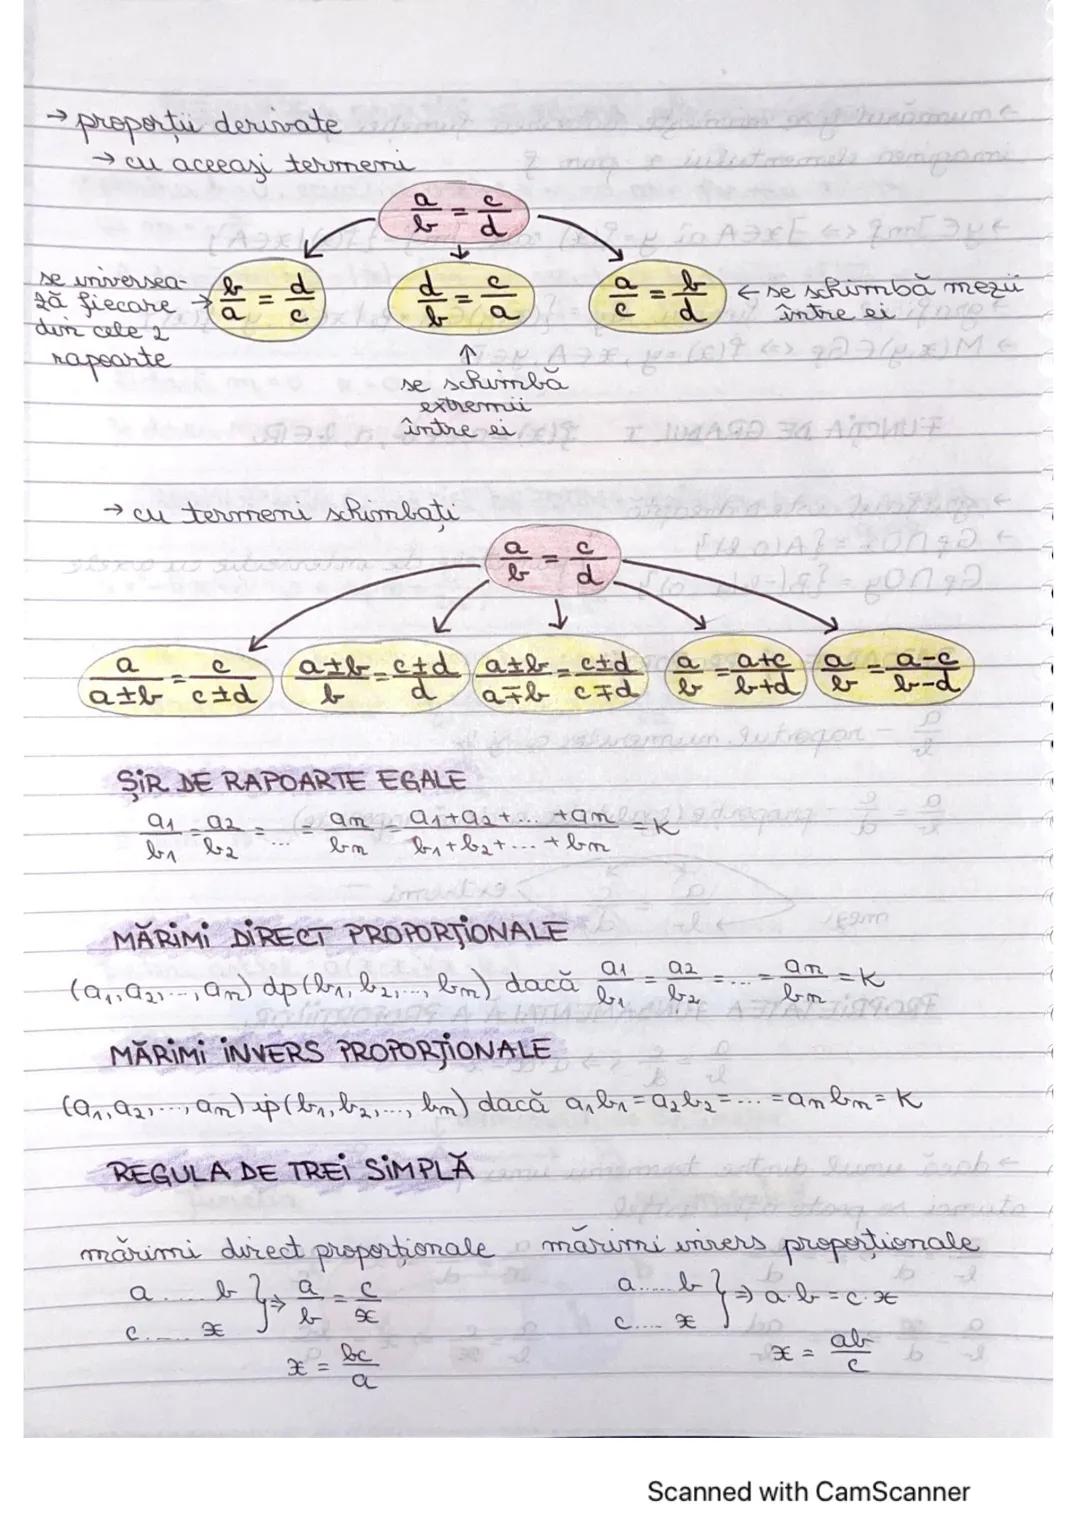 → proporții derivate
→ cu aceeași termeni
a/b = c/d
se universea-
ză fiecare →
din cele 2
rapoarte
b/a = d/c
d/b = c/a
a/c = b/d
← se schimbă mezii
între ei
↑
se schimbă
extremii
între ei
→ cu termeni schimbați
a/b = c/d
a/(a±b) = c/(c±d)
(a±b)/b = (c±d)/d
(a±b)/(a∓b) = (c±d)/(c∓d)
a/b = (a+c)/(b+d)
a/b = (a-c)/(b-d)
ȘIR DE RAPOARTE EGALE
a₁/b₁ = a₂/b₂ = ... = an/bn = (a₁+a₂+...+an)/(b₁+b₂+...+bn) = K
MĂRIMI DIRECT PROPORȚIONALE
(a₁, a₂, ..., an) dp (b₁, b₂, ..., bn) dacă a₁/b₁ = a₂/b₂ = ... = an/bn = K
MĂRIMI INVERS PROPORȚIONALE
(a₁, a₂, ..., an) ip (b₁, b₂, ..., bn) dacă a₁b₁ = a₂b₂ = ... = anbn = K
REGULA DE TREI SIMPLĂ
mărimi direct proporționale
a ..... b } ⇒ a/b = c/x
c ..... x
x = bc/a
mărimi invers proporționale
a ..... b } ⇒ a·b = c·x
c .... x
x = ab/c
Scanned with CamScanner